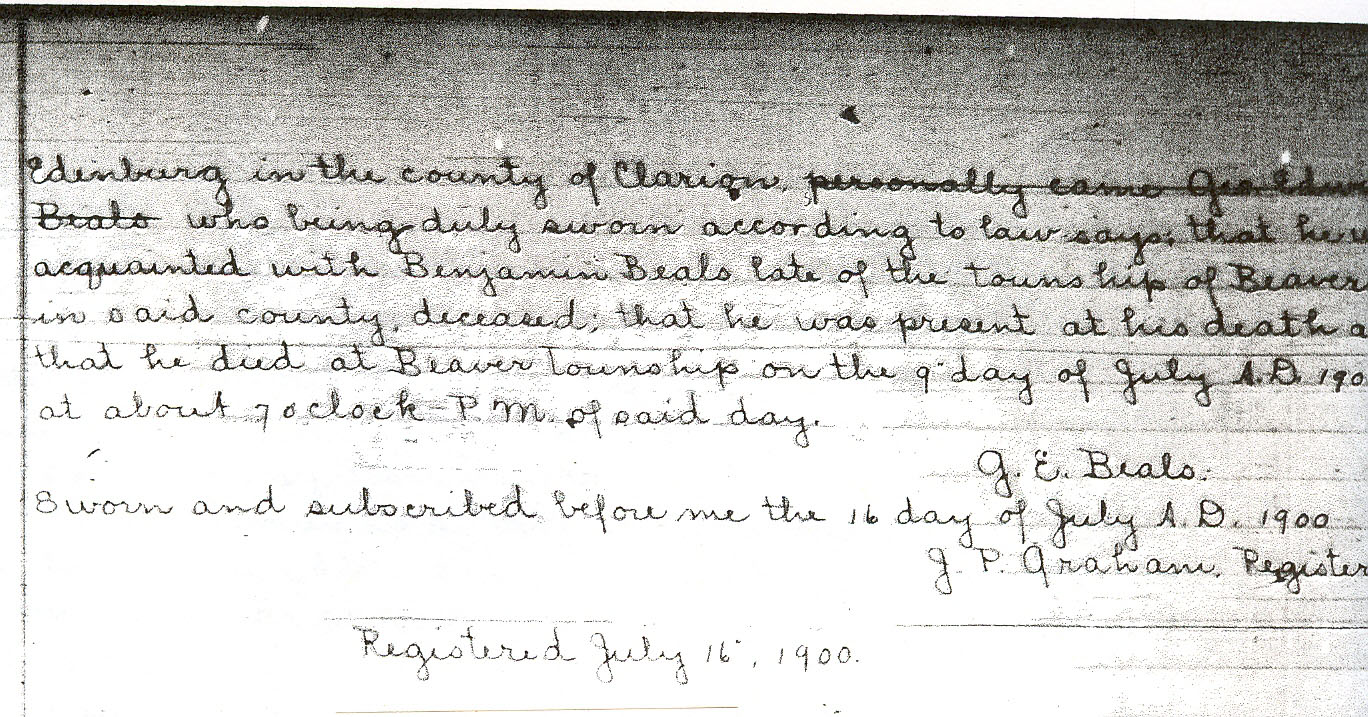 Edenburg in the county of Clarion, personally came Geo Edw
Beals who being duly sworn according to law says; that he w
acquainted with Benjamin Beals late of the township of Beaver
in said county, deceased; that he was present at his death a
that he died at Beaver Township on the 9" day of July A.D. 190
at about 7 oclock P.M. of said day.
G. E. Beals.
Sworn and subscribed before me the 16 day of July A.D. 1900
J. P. Graham, Register
Registered July 16", 1900.